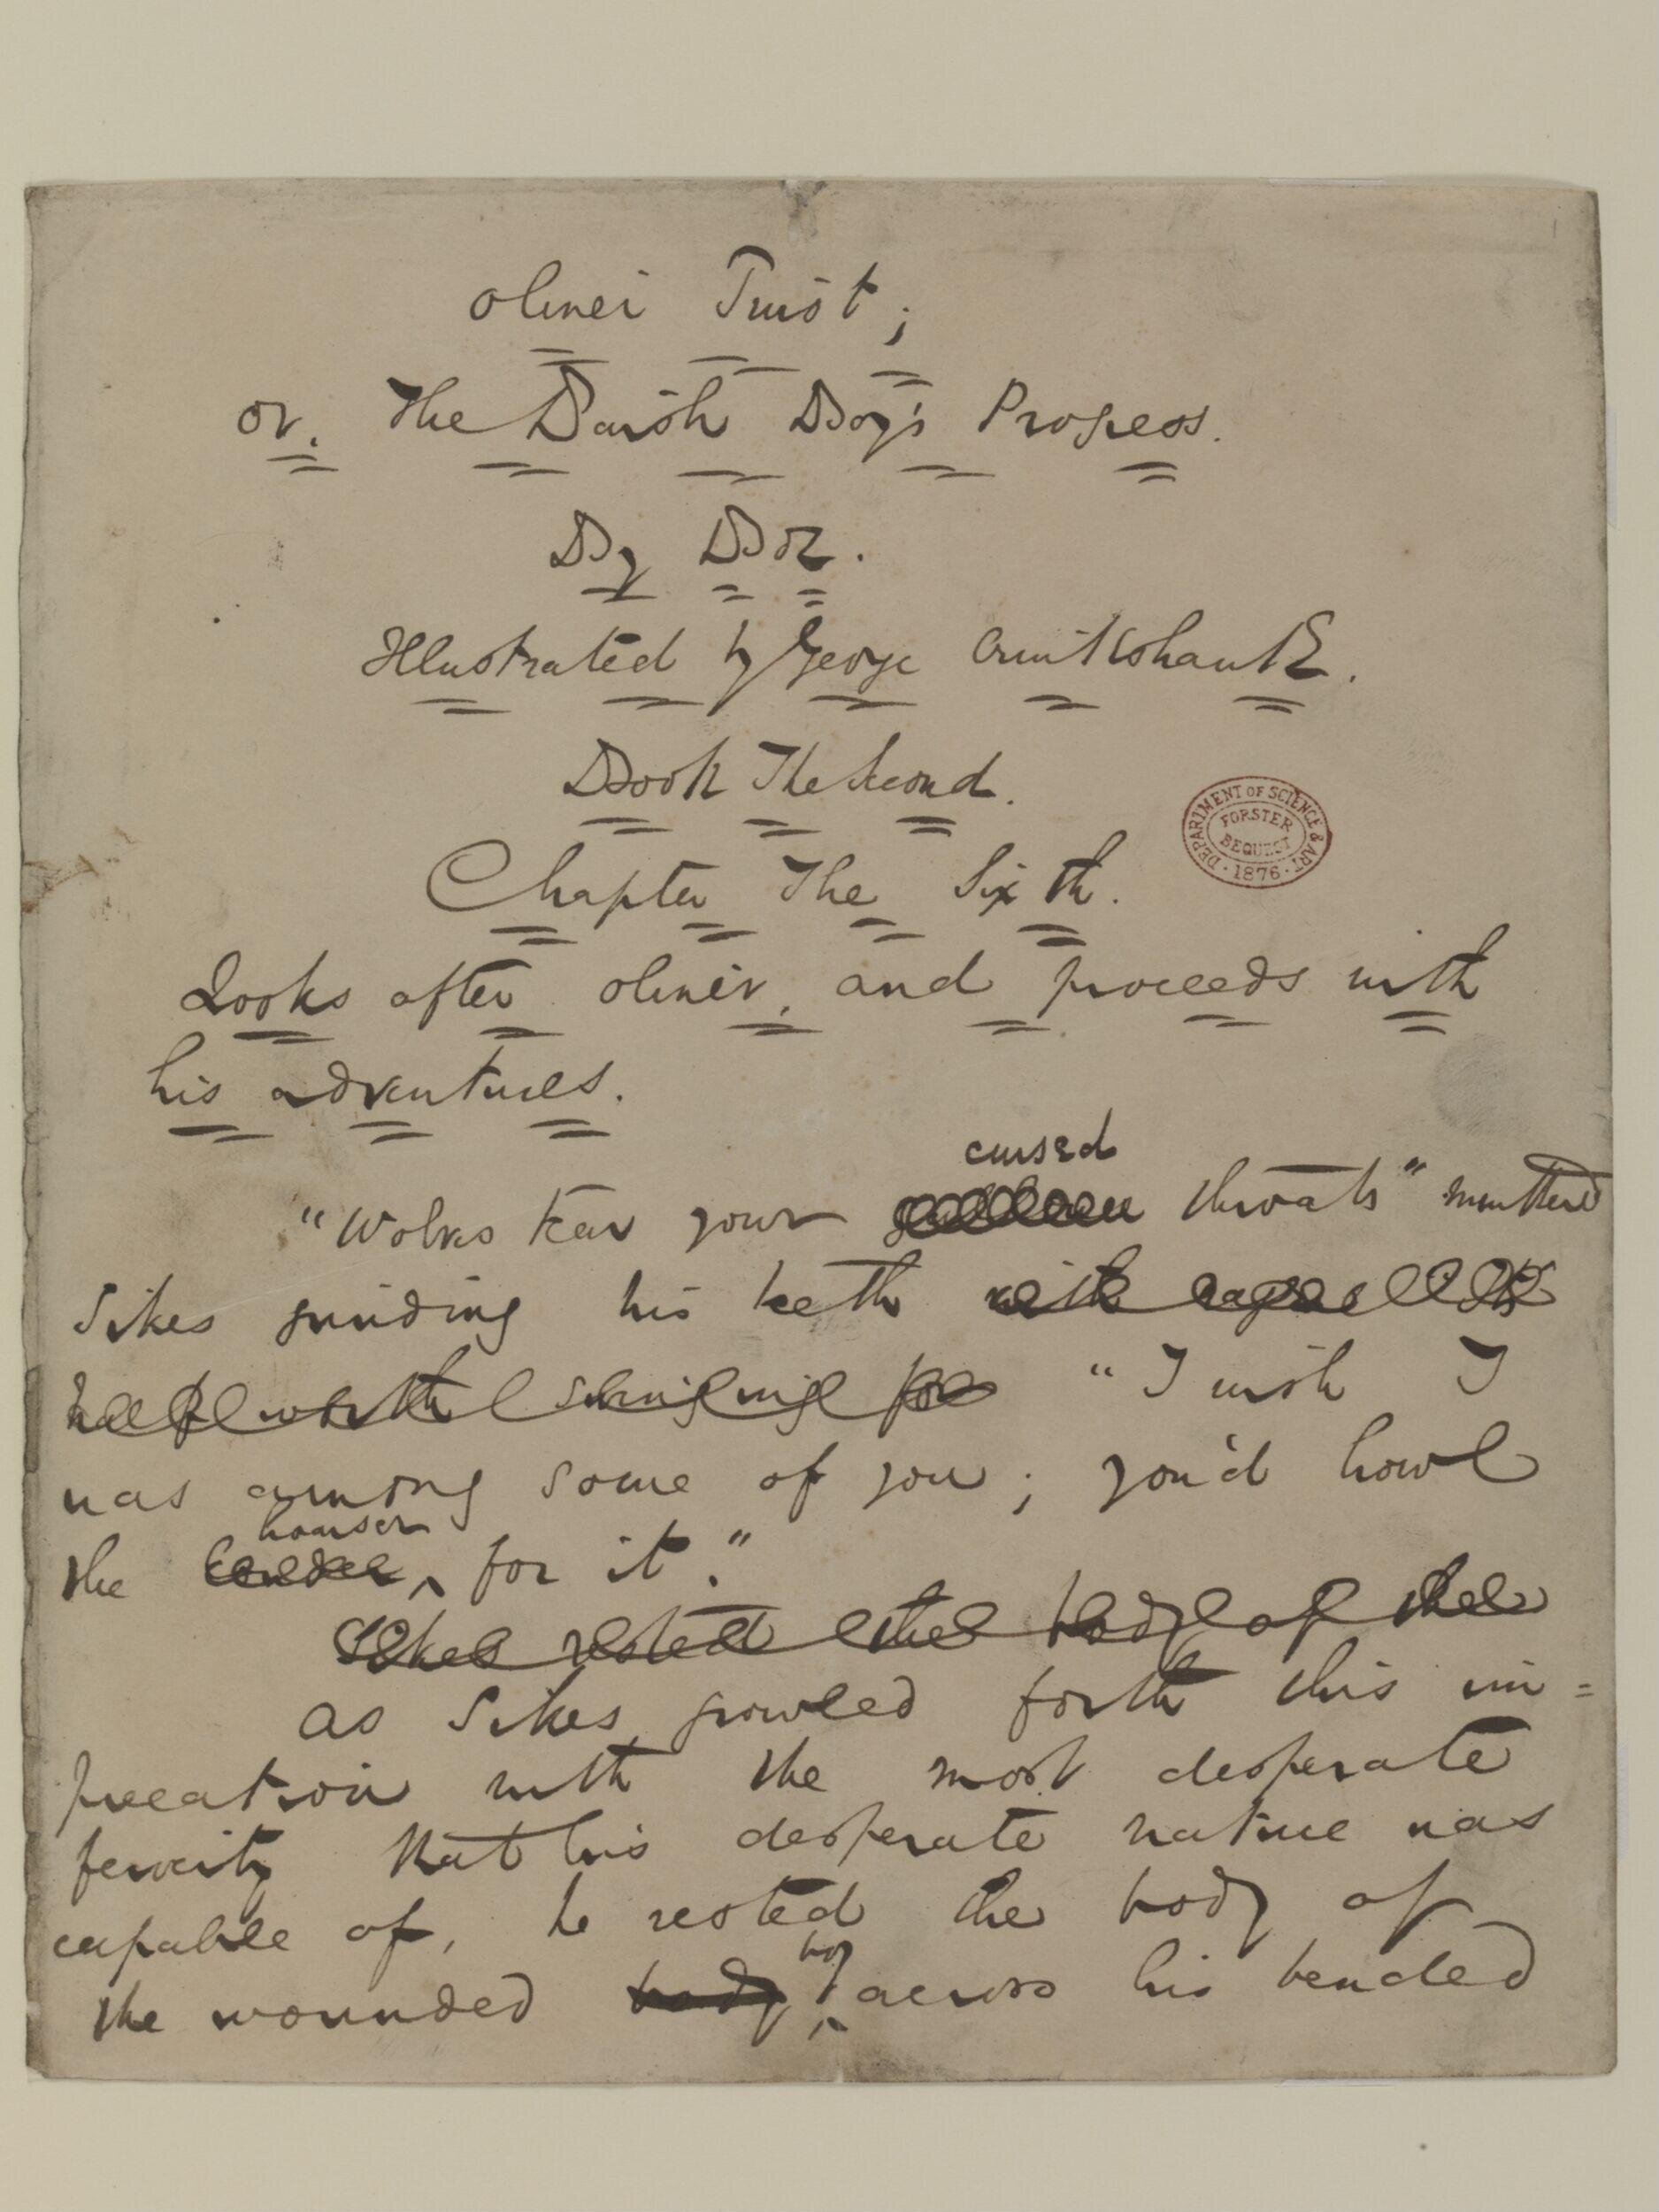 Oliver Twist;
or, The Parish Boy's Progress.
By Boz.
Illustrated by George Cruikshank.
Book The Second.
DEPARTMENT OF SCIENCE & ART · 1876 ·
FORSTER
BEQUEST
Chapter The Sixth.
Looks after Oliver, and proceeds with
his adventures.
cursed
"Wolves tear your throats" muttered
Sikes grinding his teeth with rage
half worth singing for "I wish I
was among some of you; you'd howl
hoarser
the louder for it."
Sikes rested the body of the
as Sikes growled forth this im=
precation with the most desperate
ferocity that his desperate nature was
capable of, he rested the body of
boy
the wounded body across his bended